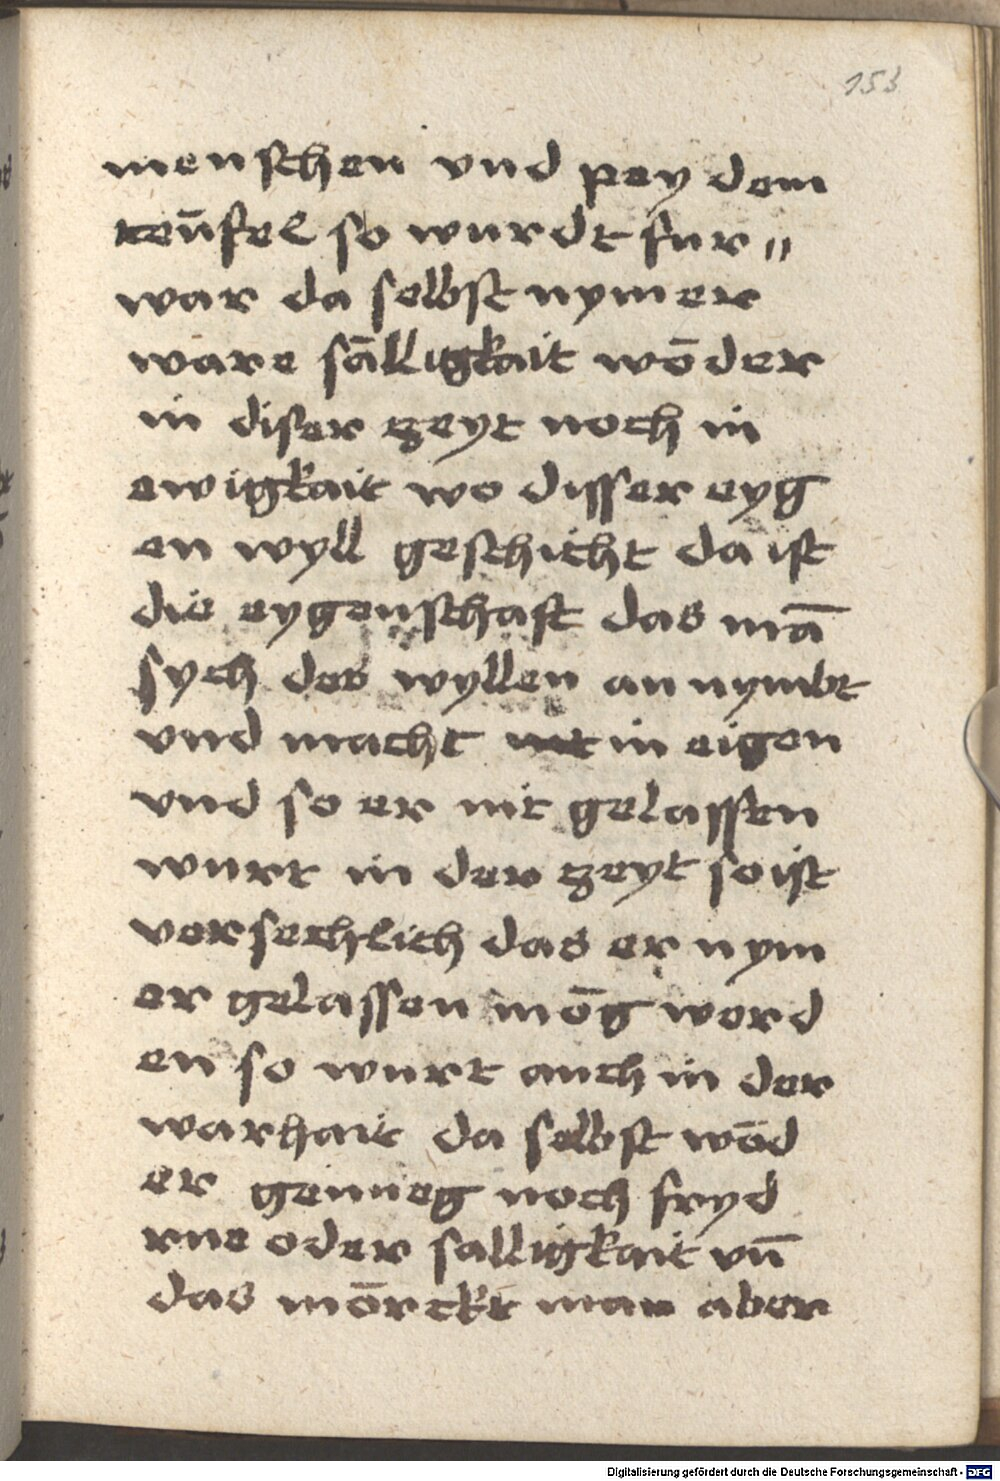 153
menschen vnd pey dem
teūfel so wurdt fur〃
war da selbst nymer
ware sālligkait wōder
in diser zeyt noch in
ewigkait wo disser eyg
en wyll geschicht da ist
die eygenschaft das mā
sych des wyllen an nymbt
vnd macht in eigen
vnd so er nit gelassen
wurt in der zeyt so ist
versechlich das er nym
er gelassen mōg werd
en so wurt auch in der
warhait da selbst wōd
er genueg noch fryd
rue oder salligkait vn̄
das mōrckt man aber
Digitalisierung gefördert durch die Deutsche Forschungsgemeinschaft - DFG